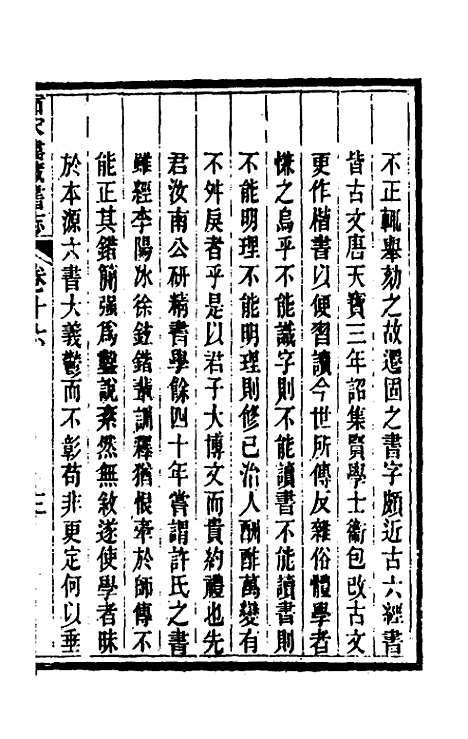 不正輒舉劾之故遷固之書字頗近古六經書
皆古文唐天寶三年詔集賢學士衞包改古文
更作楷書以便習讀今世所傳反雜俗體學者
悚之烏乎不能識字則不能讀書不能讀書則
不能明理不能明理則修己治人酬酢萬變有
不舛戾者乎是以君子大博文而貴約禮也先
君汝南公研精書學餘四十年嘗謂許氏之書
雖經李陽冰徐鉉鍇輩訓釋猶恨牽於師傳不
能正其錯簡强爲鑿說紊然無敘遂使學者昧
於本源六書大義鬱而不彰苟非更定何以垂
皕宋樓藏書志 卷十六